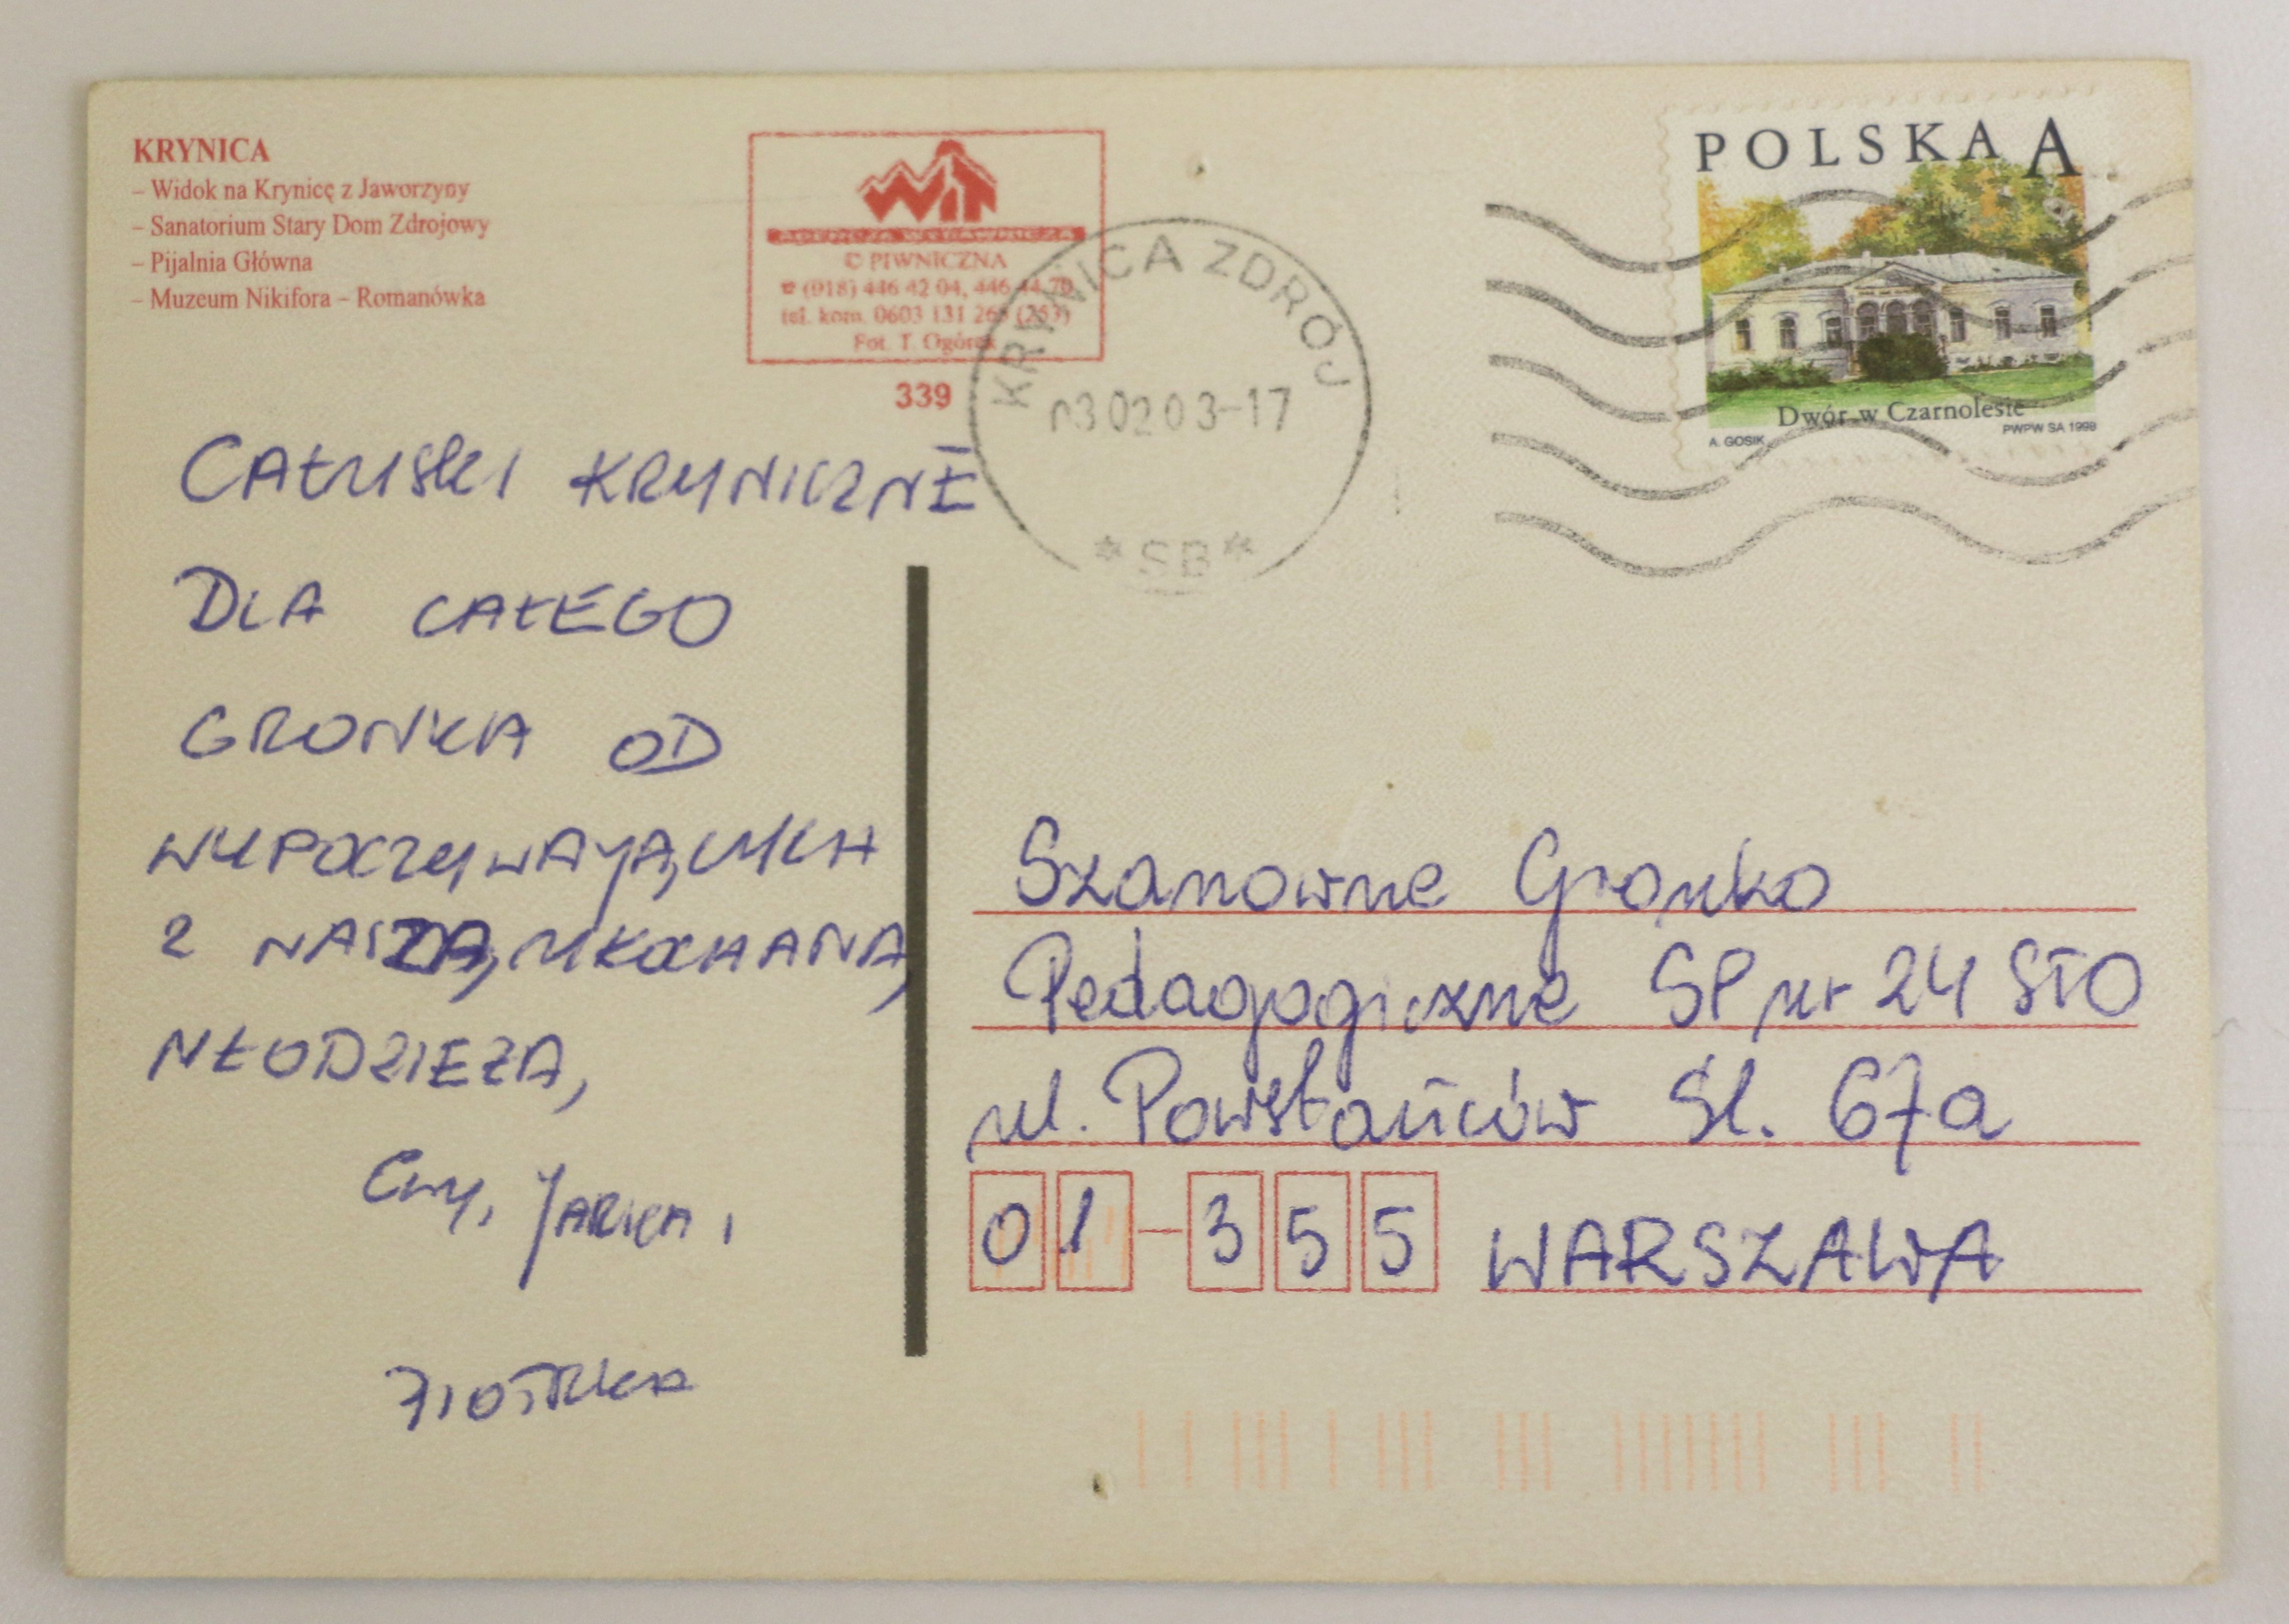 KRYNICA
– Widok na Krynicę z Jaworzyny
– Sanatorium Stary Dom Zdrojowy
– Pijalnia Główna
– Muzeum Nikifora – Romanówka
WiT
AGENCJA WYDAWNICZA
© PIWNICZNA
☎ (018) 446 42 04, 446 44 70
tel. kom. 0603 131 265 (263)
Fot. T. Ogórek
339
KRYNICA ZDRÓJ
030203-17
*SB*
POLSKA A
Dwór w Czarnolesie
A. GOSIK
PWPW SA 1998
CAŁUSKI KRYNICZNE
DLA CAŁEGO
GRONKA OD
WYPOCZYWAJĄCYCH
Z NASZĄ UKOCHANĄ
MŁODZIEŻĄ
Ewy, Jarka,
Piotrka
Szanowne Gronko
Pedagogiczne SP nr 24 STO
ul. Powstańców Śl. 67a
01-355 WARSZAWA